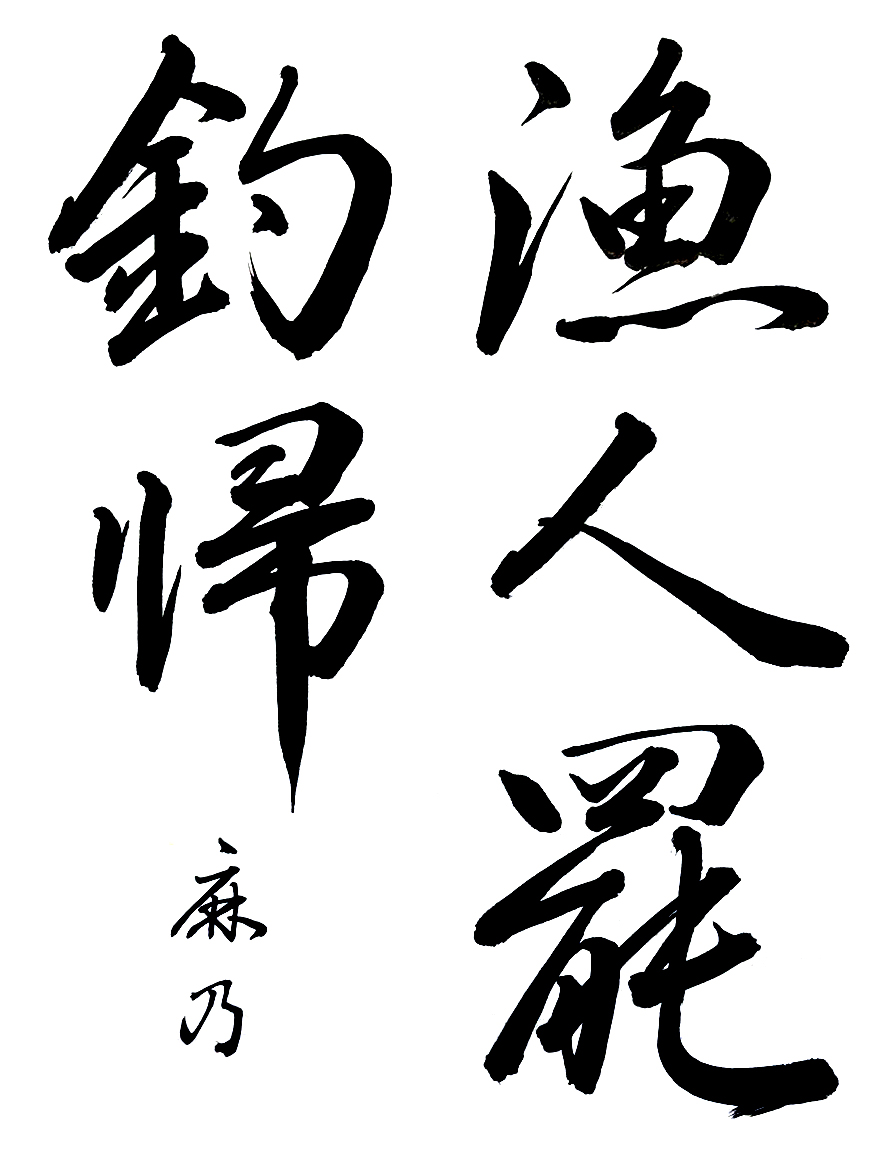 漁人罷
釣帰
麻乃